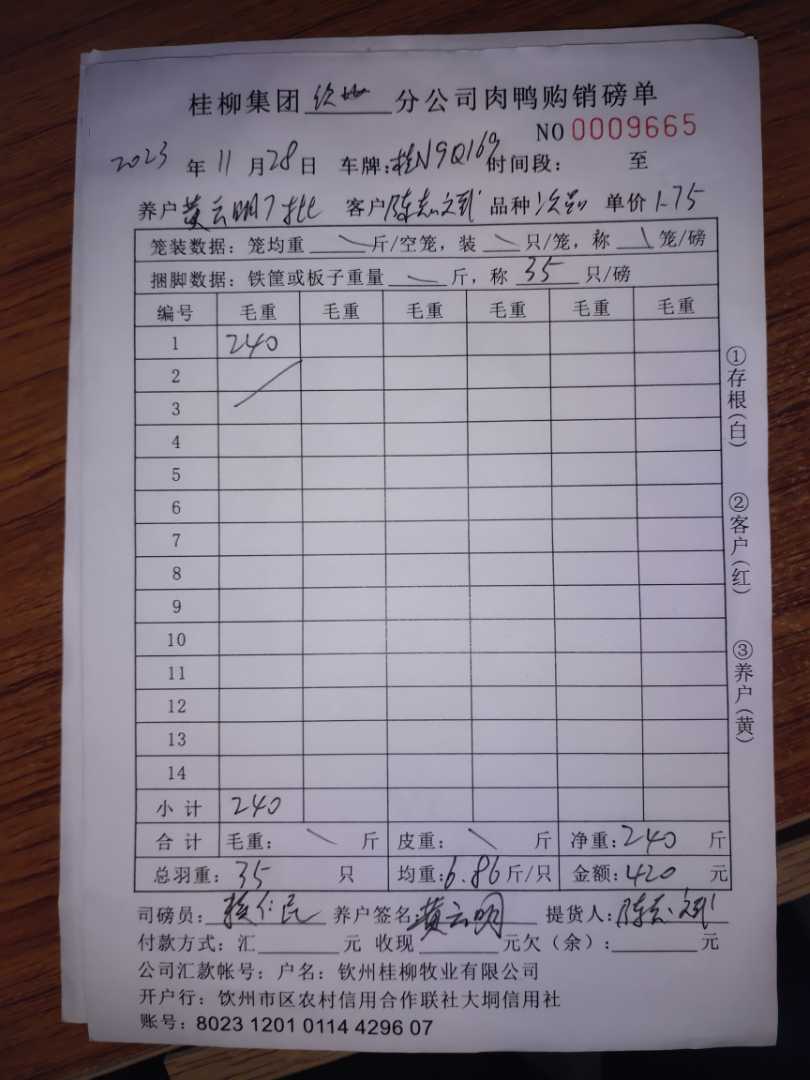 桂柳集团 分公司肉鸭购销磅单
NO 0009665
2023 年 11 月 28 日 车牌:桂N9Q169 时间段: 至
养户 黄云明7批 客户 陈志文 品种 单价 1.75
笼装数据: 笼均重 斤/空笼, 装 只/笼, 称 笼/磅
捆脚数据: 铁筐或板子重量 斤, 称 35 只/磅
编号 毛重 毛重 毛重 毛重 毛重 毛重
1 240
2
3
4
5
6
7
8
9
10
11
12
13
14
小计 240
合计 毛重: 斤 皮重: 斤 净重: 240 斤
总羽重: 35 只 均重: 6.86 斤/只 金额: 420 元
司磅员: 仁民 养户签名: 黄云明 提货人: 陈志文
付款方式: 汇 元 收现 元欠(余): 元
公司汇款帐号: 户名: 钦州桂柳牧业有限公司
开户行: 饮州市区农村信用合作联社大垌信用社
账号: 8023 1201 0114 4296 07
①存根(白)
②客户(红)
③养户(黄)